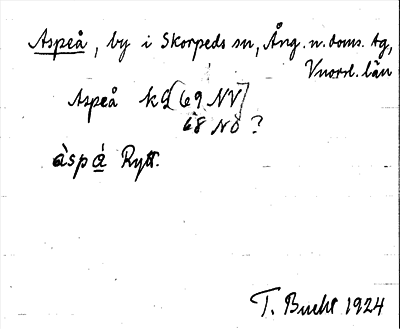 Aspeå, by i Skorpeds sn, Ång. n. doms. tg,
Vnorrl. län
Aspeå kg [69 NV]
68 NO ?
àspá Rytt.
T. Bucht 1924